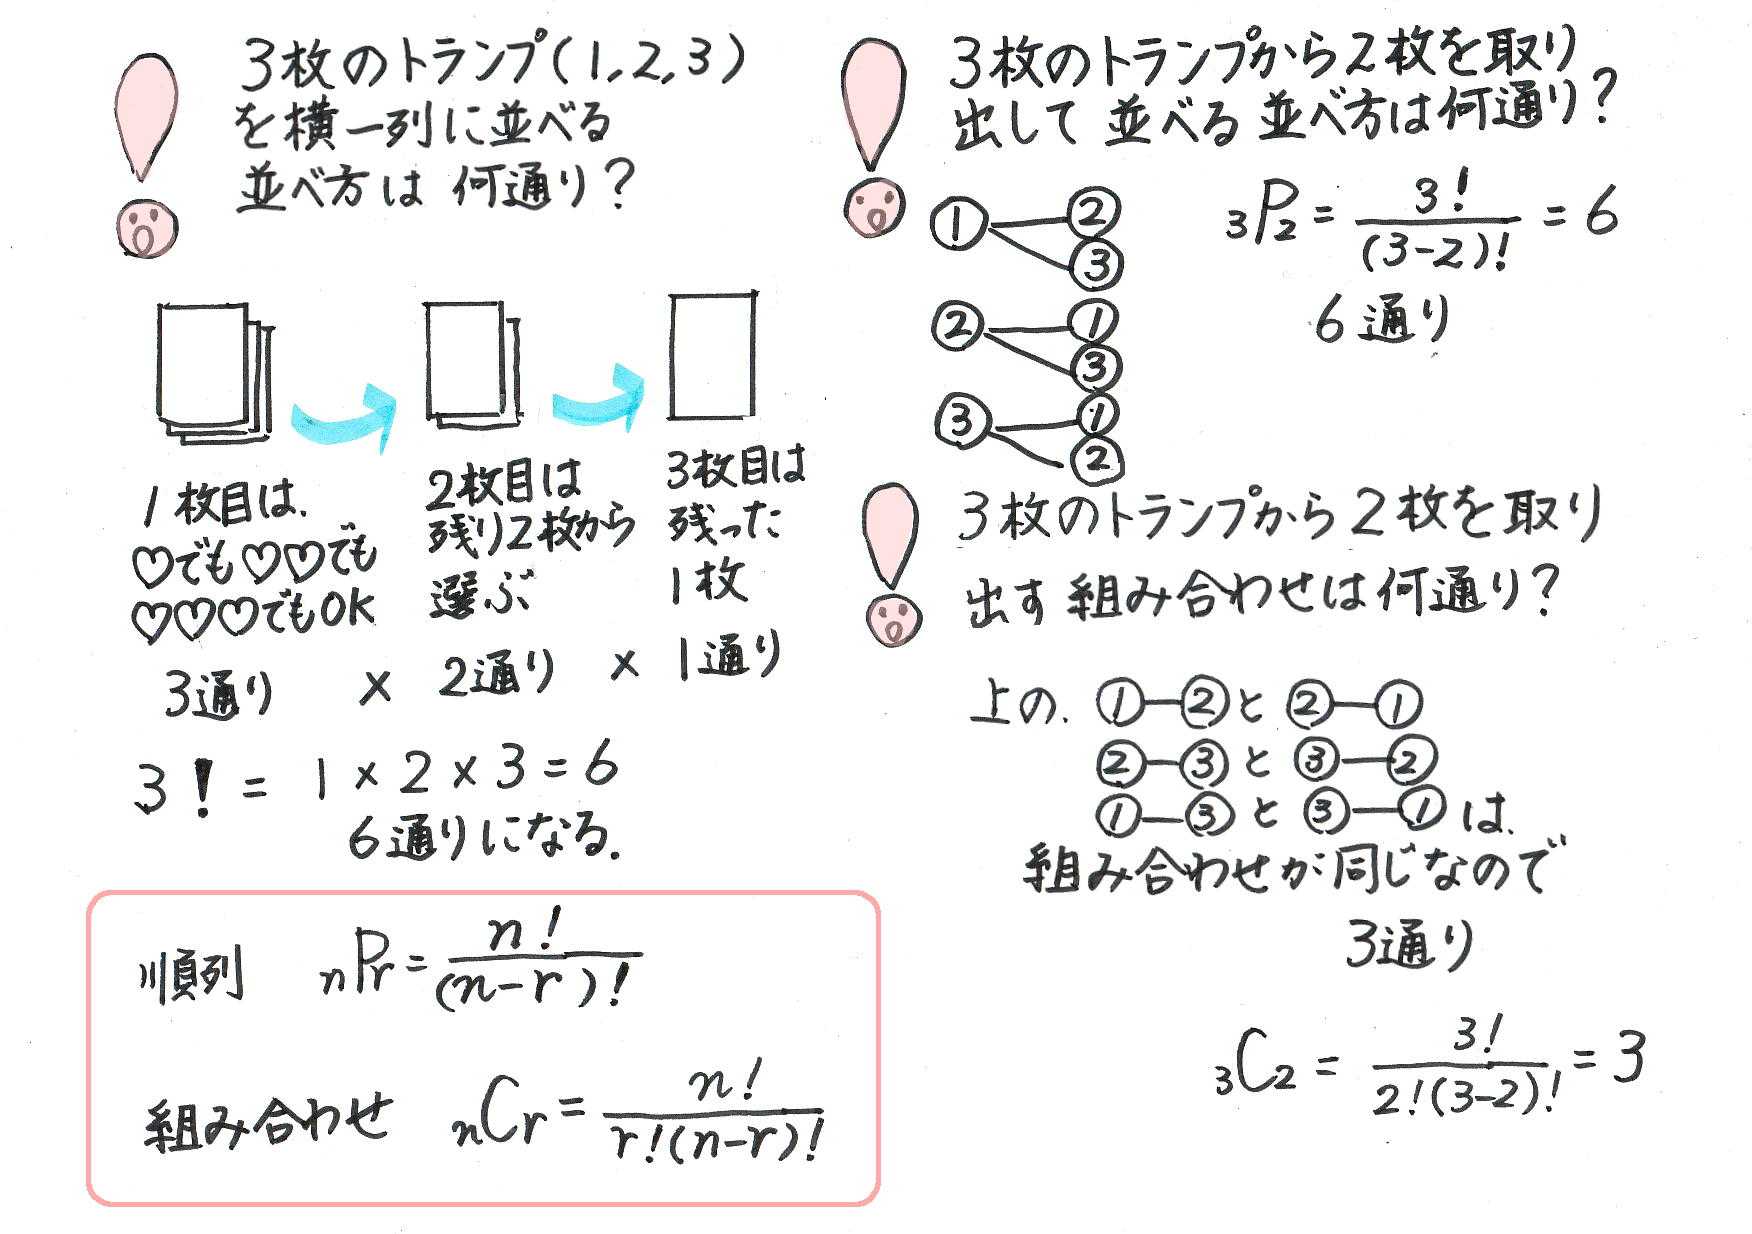 3枚のトランプ(1,2,3)
を横一列に並べる
並べ方は 何通り?
1枚目は、
♡でも♡♡でも
♡♡♡でもOK
2枚目は
残り2枚から
選ぶ
3枚目は
残った
1枚
3通り × 2通り × 1通り
3! = 1×2×3=6
6通りになる.
順列 nPr = n!/(n-r)!
組み合わせ nCr = n!/r!(n-r)!
3枚のトランプから2枚を取り
出して 並べる 並べ方は何通り?
① ②
③
② ①
③
③ ①
②
3P2 = 3!/(3-2)! = 6
6通り
3枚のトランプから2枚を取り
出す 組み合わせは何通り?
上の、 ①-②と②-①
②-③と③-②
①-③と③-①は、
組み合わせが同じなので
3通り
3C2 = 3!/2!(3-2)! = 3